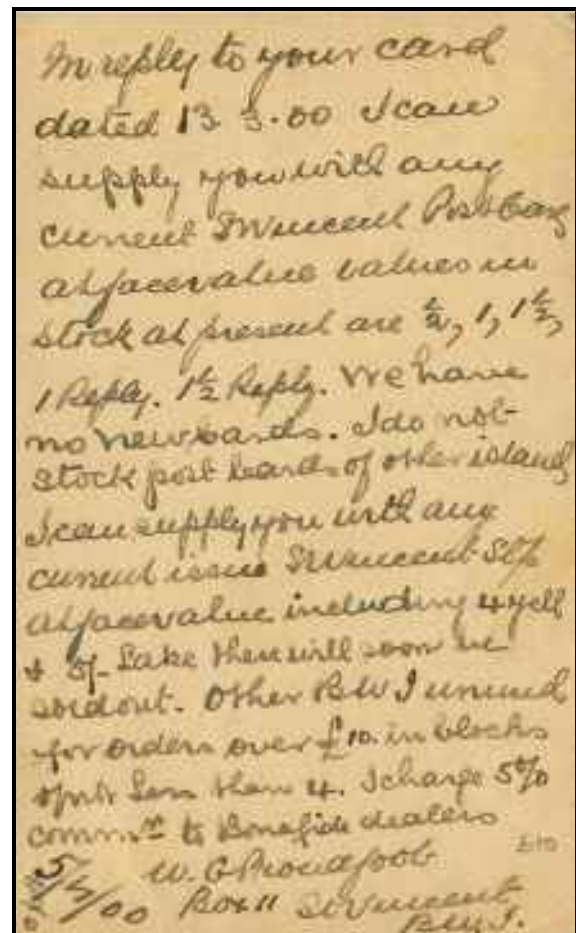 In reply to your card
dated 13.3.00 I can
supply you with any
current St Vincent Post Cards
at face value values in
stock at present are ½, 1, 1½,
1 Reply. 1½ Reply. We have
no new cards. I do not
stock post cards of other islands
I can supply you with any
current issue St Vincent Stps
at face value including 4 yell
& 5/- Lake these will soon be
sold out. Other B.W.I unused
for orders over £10. in blocks
of not less than 4. I charge 5%
commn to Bonafide dealers
W. G Proudfoot
5/4/00 Box 11 St Vincent
B.W.I.
£10